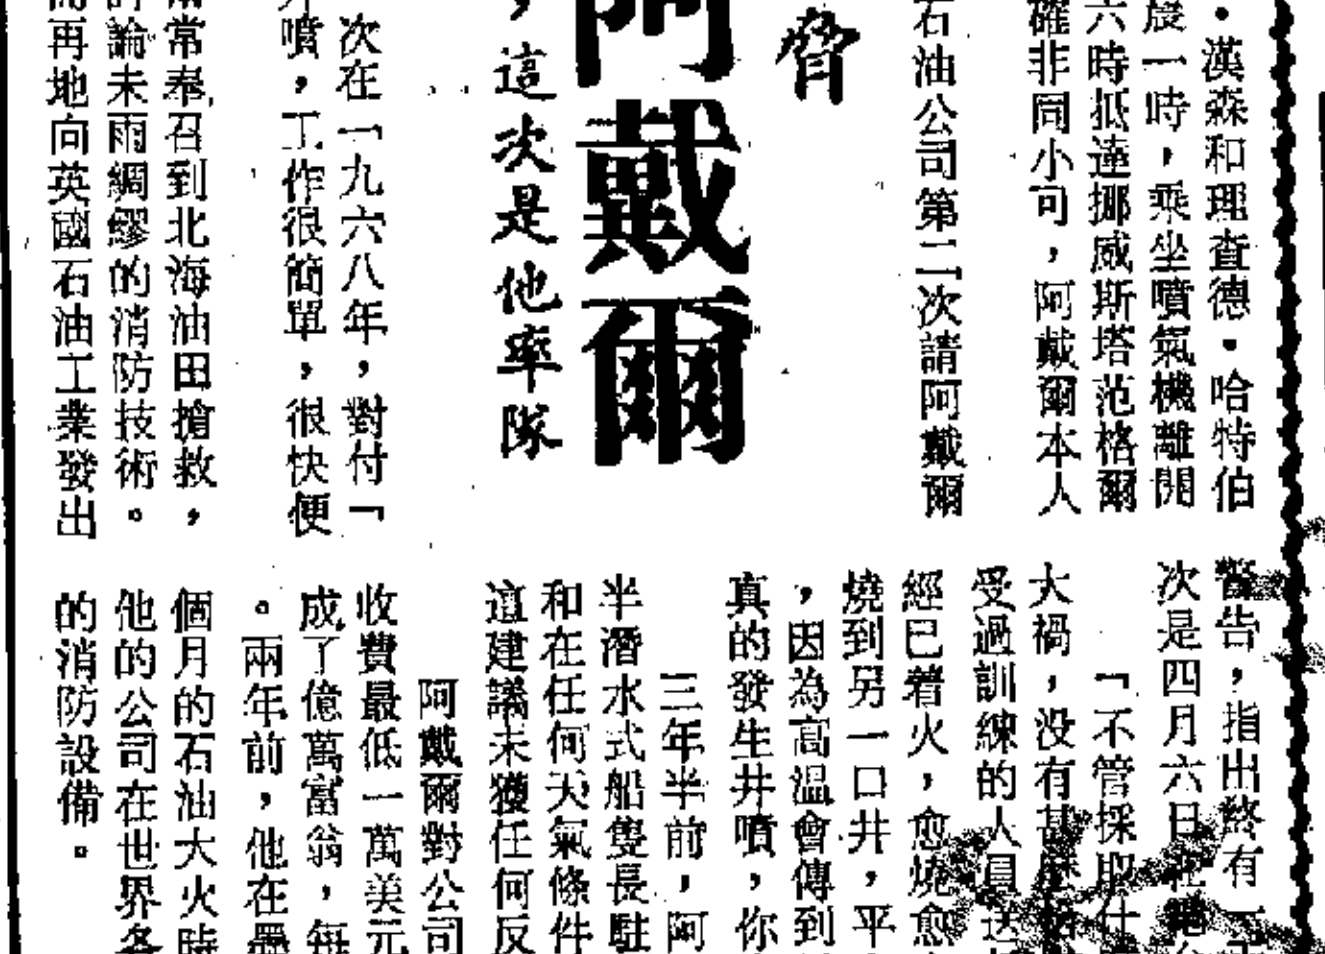 ・漢森和理查德・哈特伯
晨一時，乘坐噴氣機離開
六時抵達挪威斯塔范格爾
確非同小可，阿戴爾本人
石油公司第二次請阿戴爾
脅
阿戴爾
，這次是他率隊
次在一九六八年，對付「
井噴，工作很簡單，很快便
常奉召到北海油田搶救，
論未雨綢繆的消防技術。
再地向英國石油工業發出
警告，指出終有一
次是四月六日在
「不管採取什
大禍，没有甚麼
受過訓練的人員送
經已着火，愈燒愈
燒到另一口井，平
，因為高溫會傳到
真的發生井噴，你
三年半前，阿
半潛水式船隻長駐
和在任何天氣條件
這建議未獲任何反
阿戴爾對公司
收費最低一萬美元
成了億萬富翁，每
。兩年前，他在墨
個月的石油大火時
他的公司在世界各
的消防設備。